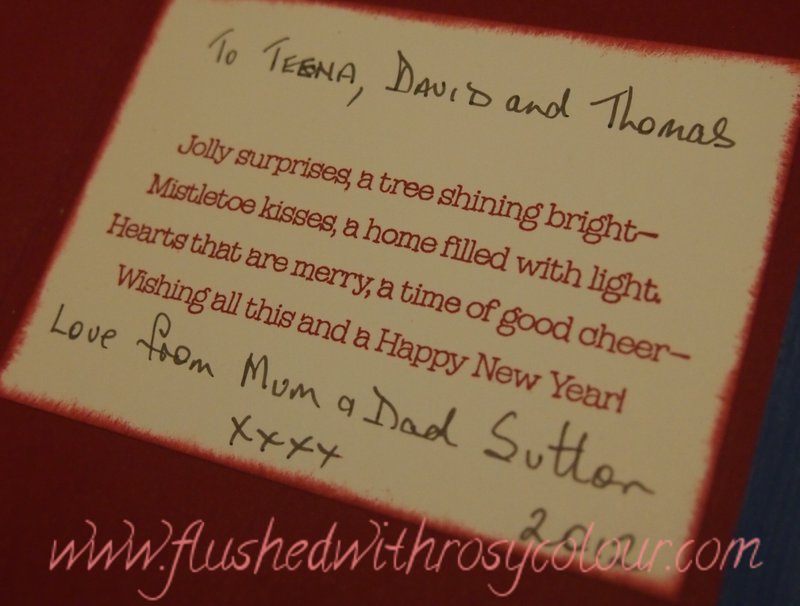 To TEENA, DAVID and Thomas
Jolly surprises, a tree shining bright—
Mistletoe kisses, a home filled with light.
Hearts that are merry, a time of good cheer—
Wishing all this and a Happy New Year!
Love from Mum & Dad Sutton
xxxx
www.flushedwithrosycolour.com